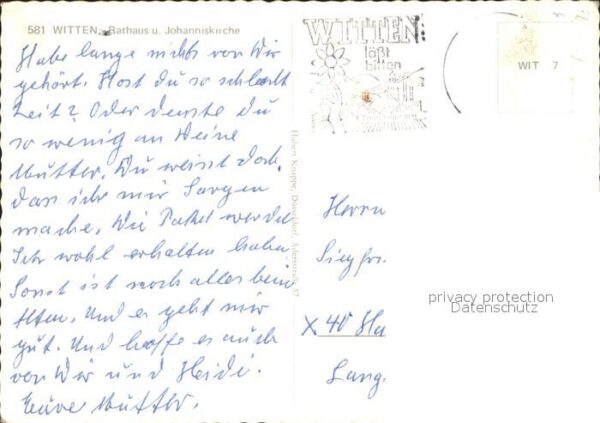 581 WITTEN - Rathaus u. Johanniskirche
Habe lange nichts von Dir
gehört. Hast du so schlecht
Zeit? Oder denkst du
so wenig an Deine
Mutter. Du weisst doch
dass ich mir Sorgen
mache. Die Paket werdet
Ihr wohl erhalten haben.
Sonst ist noch alles beim
Alten. Und es geht mir
gut. Und hoffe es auch
von Dir und Heidi.
Eure Mutter.
WITTEN
läßt
bitten
WIT 7
Hubert Knuppe, Düsseldorf,
Herrn
Siegfr.
X 40 Ha
Lang.
privacy protection
Datenschutz